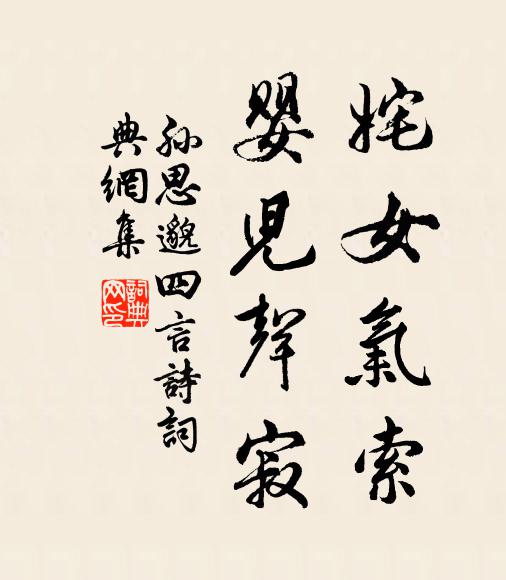 姹女氣索
嬰兒聲寂
孫思邈四言詩詞
典網集
詞典
网印